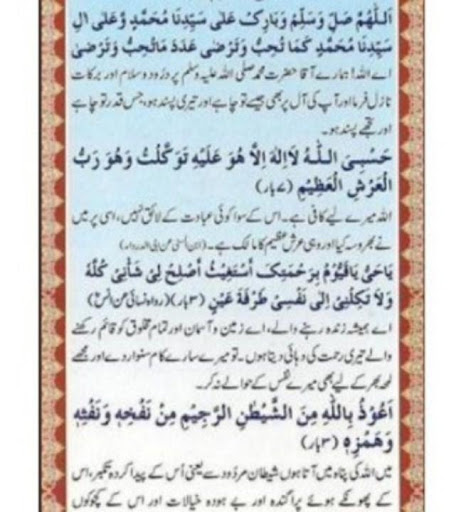 اَللّٰهُمَّ صَلِّ وَسَلِّمْ وَبَارِكْ عَلٰى سَيِّدِنَا مُحَمَّدٍ وَّعَلٰى اٰلِ
سَيِّدِنَا مُحَمَّدٍ كَمَا تُحِبُّ وَتَرْضٰى عَدَدَ مَا تُحِبُّ وَتَرْضٰى
اے اللہ! ہمارے آقا حضرت محمد صلی اللہ علیہ وسلم پر درود و سلام اور برکات
نازل فرما اور آپ کی آل پر بھی جیسے تو چاہے اور تیری پسند ہو، جس قدر تو چاہے
اور تجھے پسند ہو۔
حَسْبِيَ اللّٰهُ لَآ اِلٰهَ اِلَّا هُوَ عَلَيْهِ تَوَكَّلْتُ وَهُوَ رَبُّ
الْعَرْشِ الْعَظِيْمِ (۷ بار)
اللہ میرے لیے کافی ہے۔ اس کے سوا کوئی عبادت کے لائق نہیں، اسی پر میں
نے بھروسہ کیا اور وہی عرش عظیم کا مالک ہے۔ (ابن السنی عن ابی الدرداء)
يَاحَيُّ يَاقَيُّوْمُ بِرَحْمَتِكَ اَسْتَغِيْثُ اَصْلِحْ لِيْ شَأْنِيْ كُلَّهٗ
وَلَا تَكِلْنِيْ اِلٰى نَفْسِيْ طَرْفَةَ عَيْنٍ (۳ بار) (رواہ نسائی عن انسؓ)
اے ہمیشہ زندہ رہنے والے، اے زمین و آسمان اور تمام مخلوق کو قائم رکھنے
والے تیری رحمت کی دہائی دیتا ہوں۔ تو میرے سارے کام سنوار دے اور مجھے
لمحہ بھر کے لیے بھی میرے نفس کے حوالے نہ کر۔
اَعُوْذُ بِاللّٰهِ مِنَ الشَّيْطٰنِ الرَّجِيْمِ مِنْ نَفْخِهٖ وَنَفْثِهٖ
وَهَمْزِهٖ (۳ بار)
میں اللہ کی پناہ میں آتا ہوں شیطان مردود سے یعنی اُس کے پیدا کردہ تکبر، اس
کے پھونکے ہوئے پراگندہ اور بے ہودہ خیالات اور اس کے کچوکوں